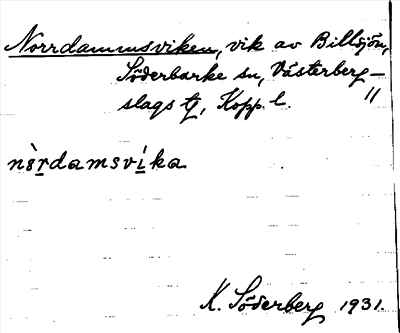 Norrdammsviken, vik av Billsjön,
Söderbarke sn, Västerberg-
slags tg, Kopp. l.
nòrdamsvíka
K. Söderberg 1931.